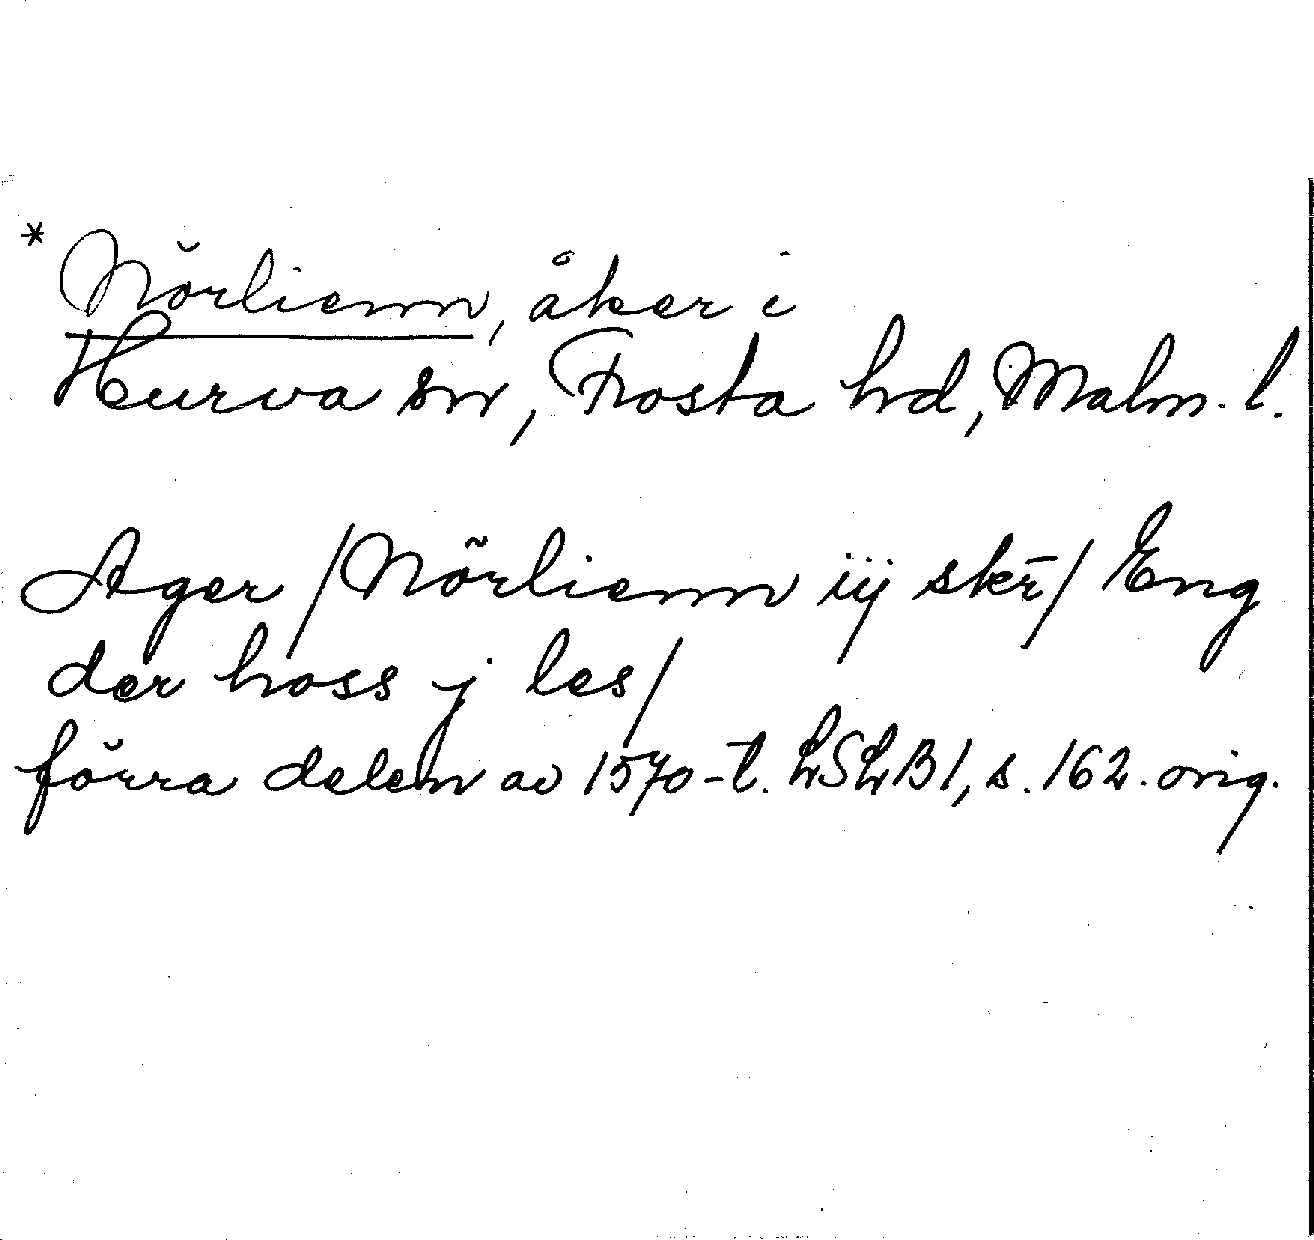 * Nörlienn, åker i
Hurva sn, Frosta hd, Malm. l.
Ager / Nõrlienn iij skr̄ / Eng
der hoss j les /
förra delen av 1570-t. LSLB 1, s. 162. orig.